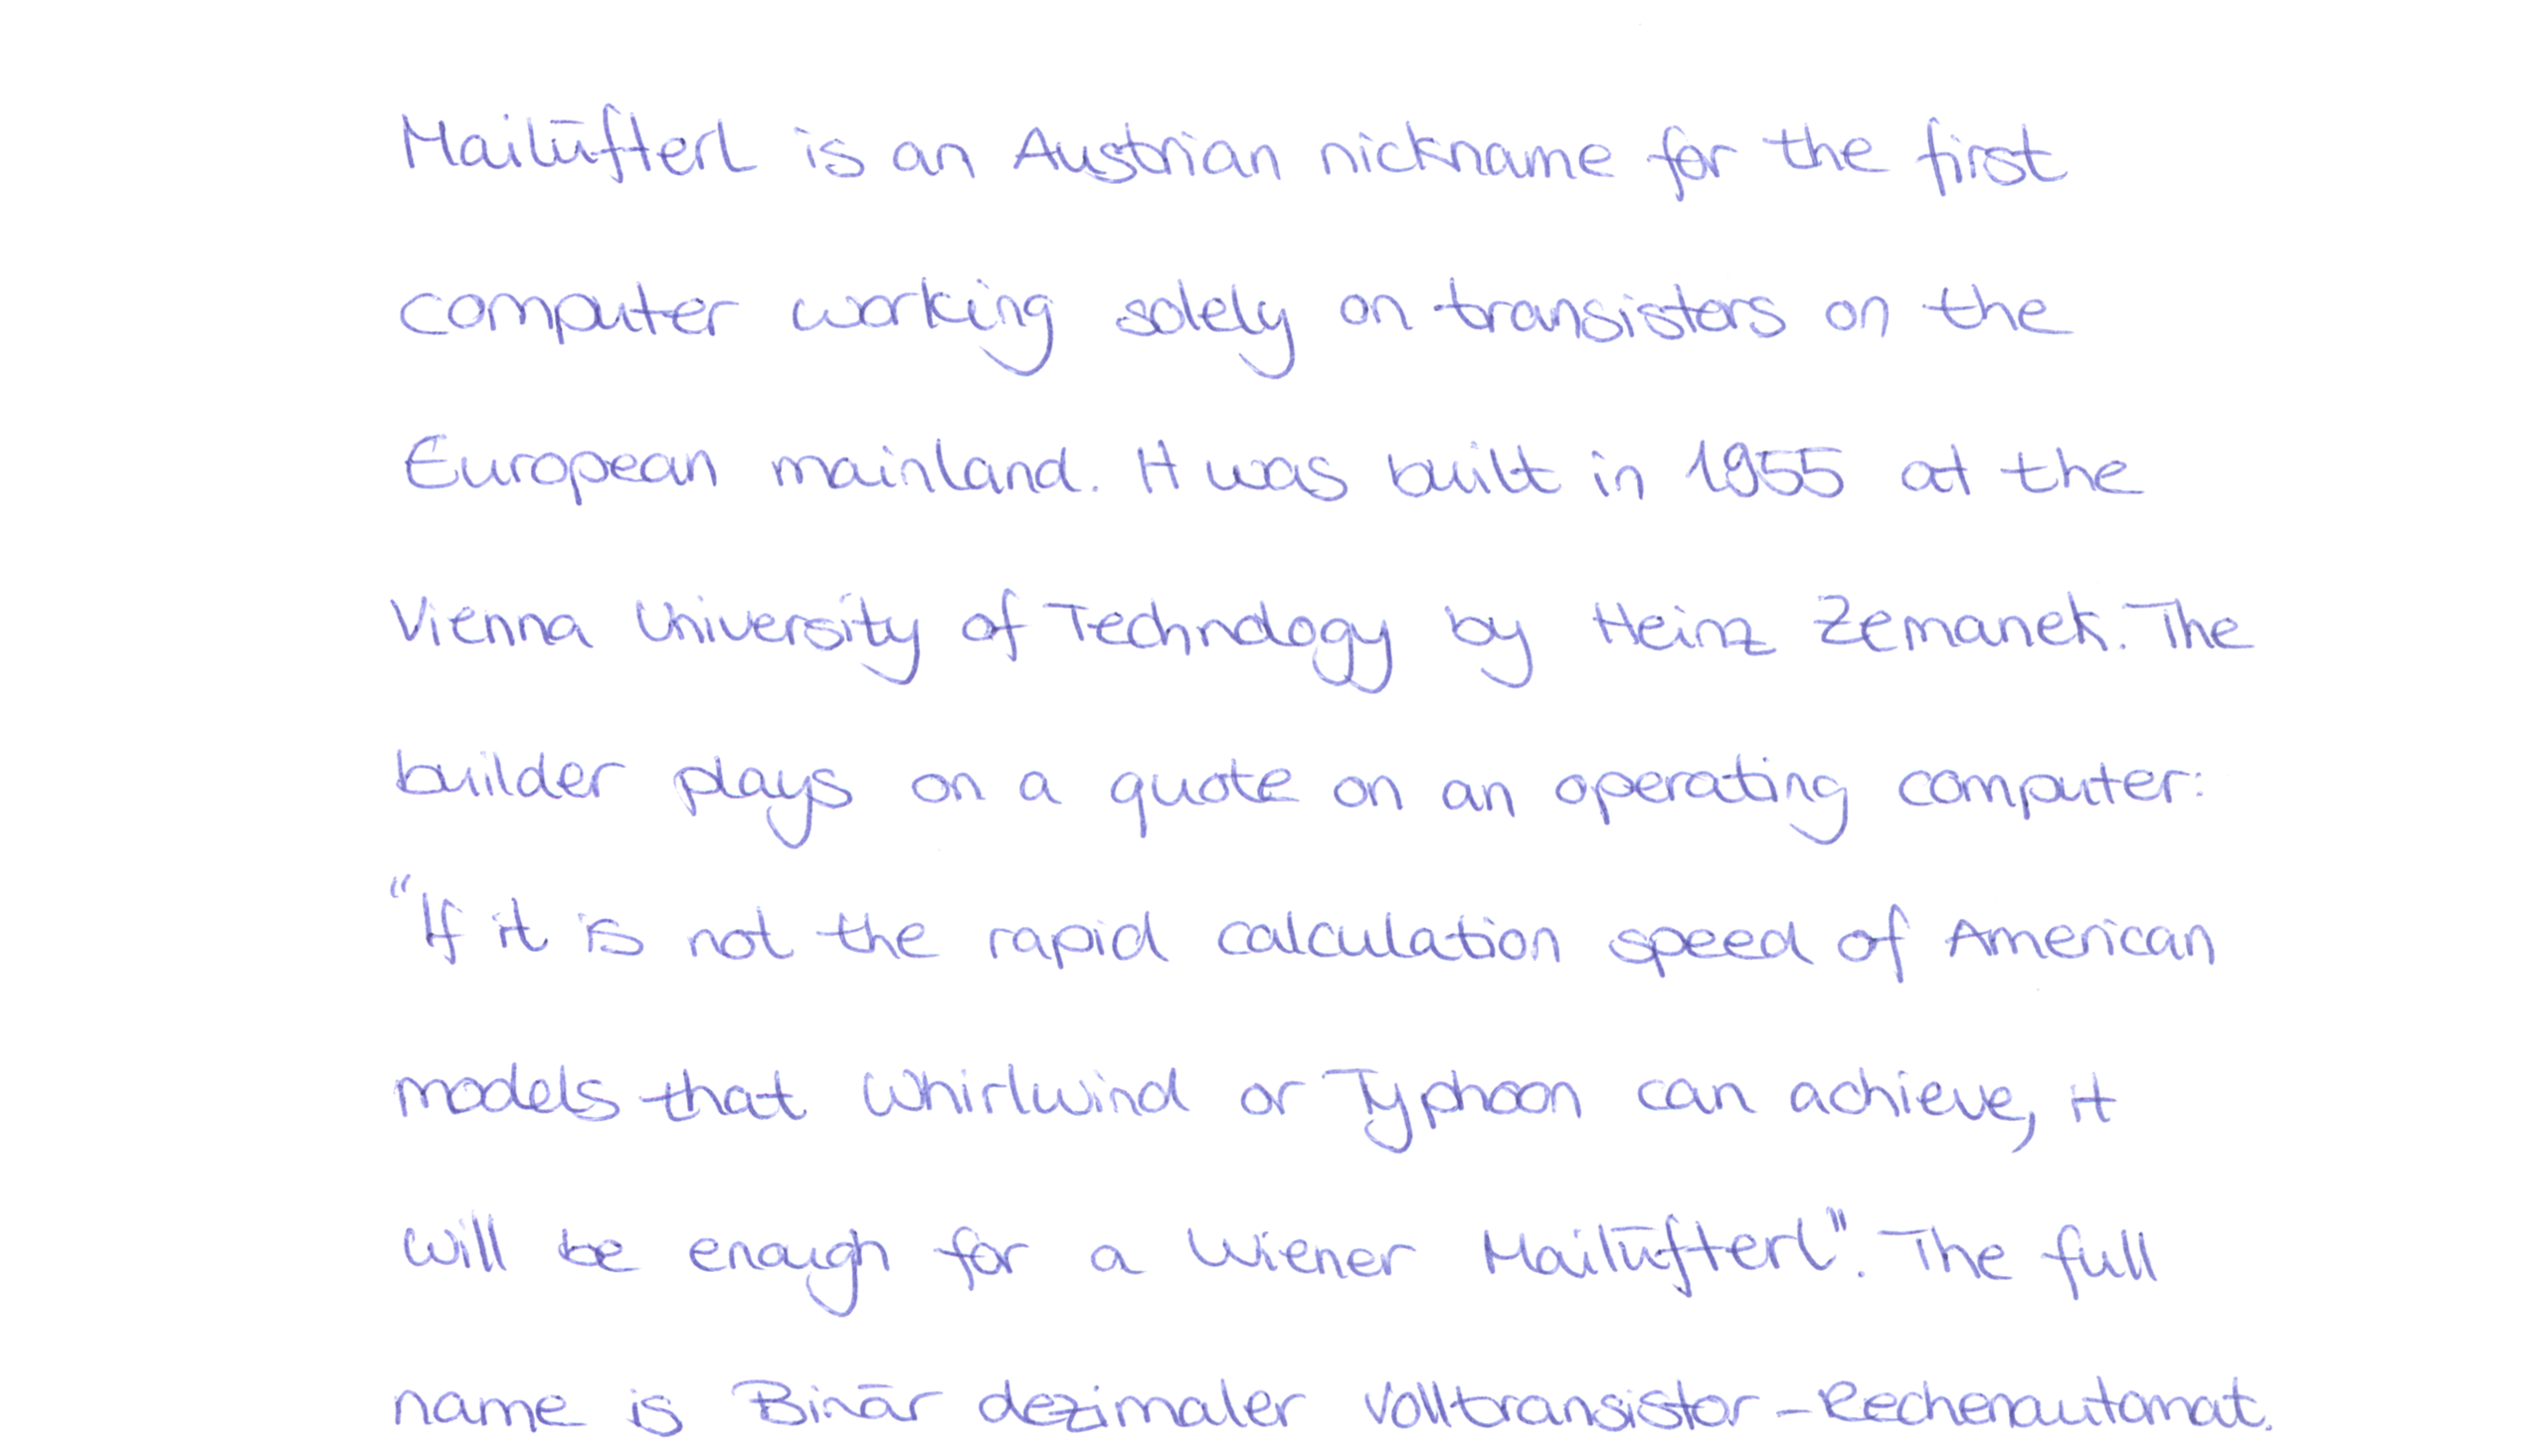 Mailüfterl is an Austrian nickname for the first
computer working solely on transistors on the
European mainland. It was built in 1955 at the
Vienna University of Technology by Heinz Zemanek. The
builder plays on a quote on an operating computer:
"If it is not the rapid calculation speed of American
models that Whirlwind or Typhoon can achieve, it
will be enough for a Wiener Mailüfterl". The full
name is Binär dezimaler Volltransistor-Rechenautomat.